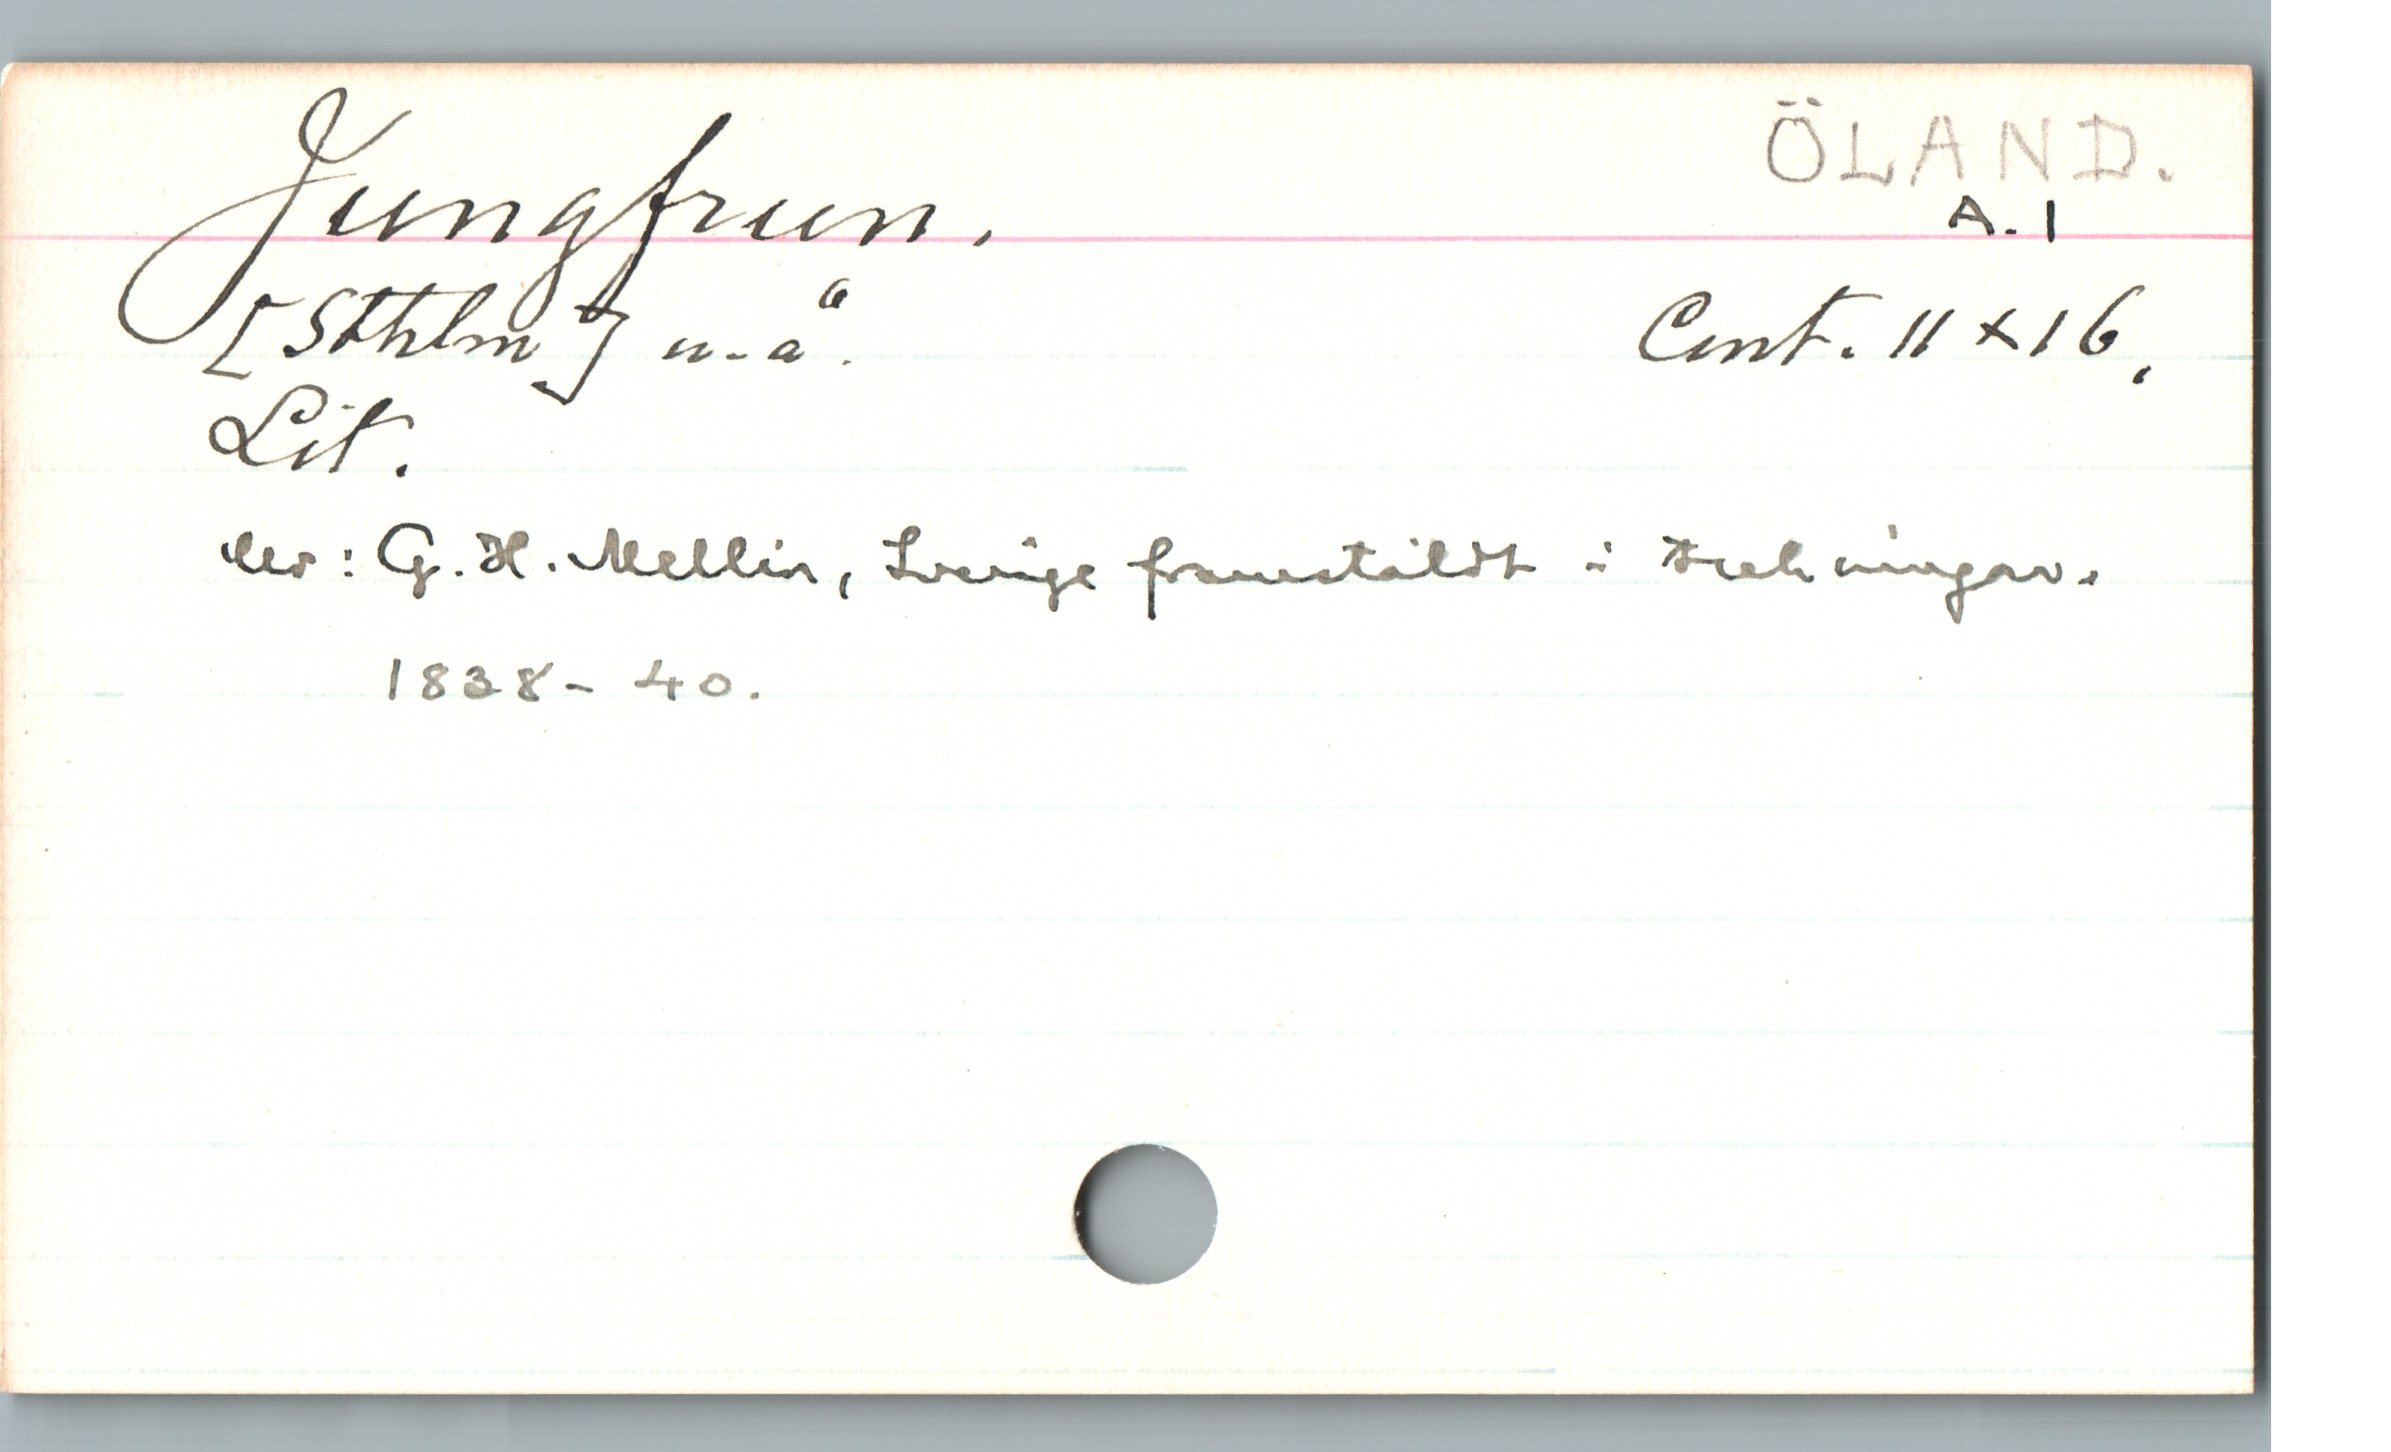 ÖLAND.
Jungfrun.
A. 1
[Sthlm] u. å.
Cent. 11 x 16.
Lit.
ur: G. H. Mellin, Sverige framstäldt i teckningar.
1838-40.